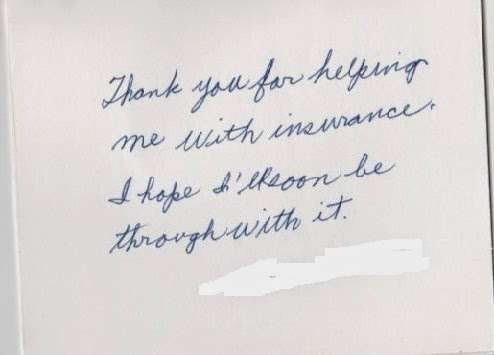 Thank you for helping
me with insurance.
I hope I'll soon be
through with it.